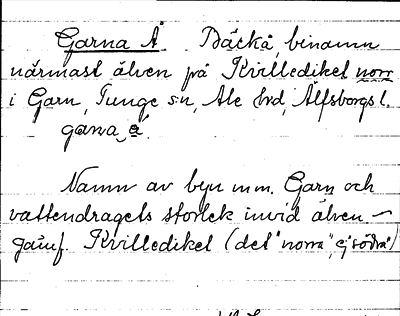 Garna Å. Bäckå, binamn
närmast älven på Kvilledikel norr
i Garn, Tunge sn, Ale hrd, Älfsborgs l.
garna, å.
Namn av byn m m. Garn och
vattendragets storlek invid älven –
jämf. Kvilledikel (det "norra", ej "södra")